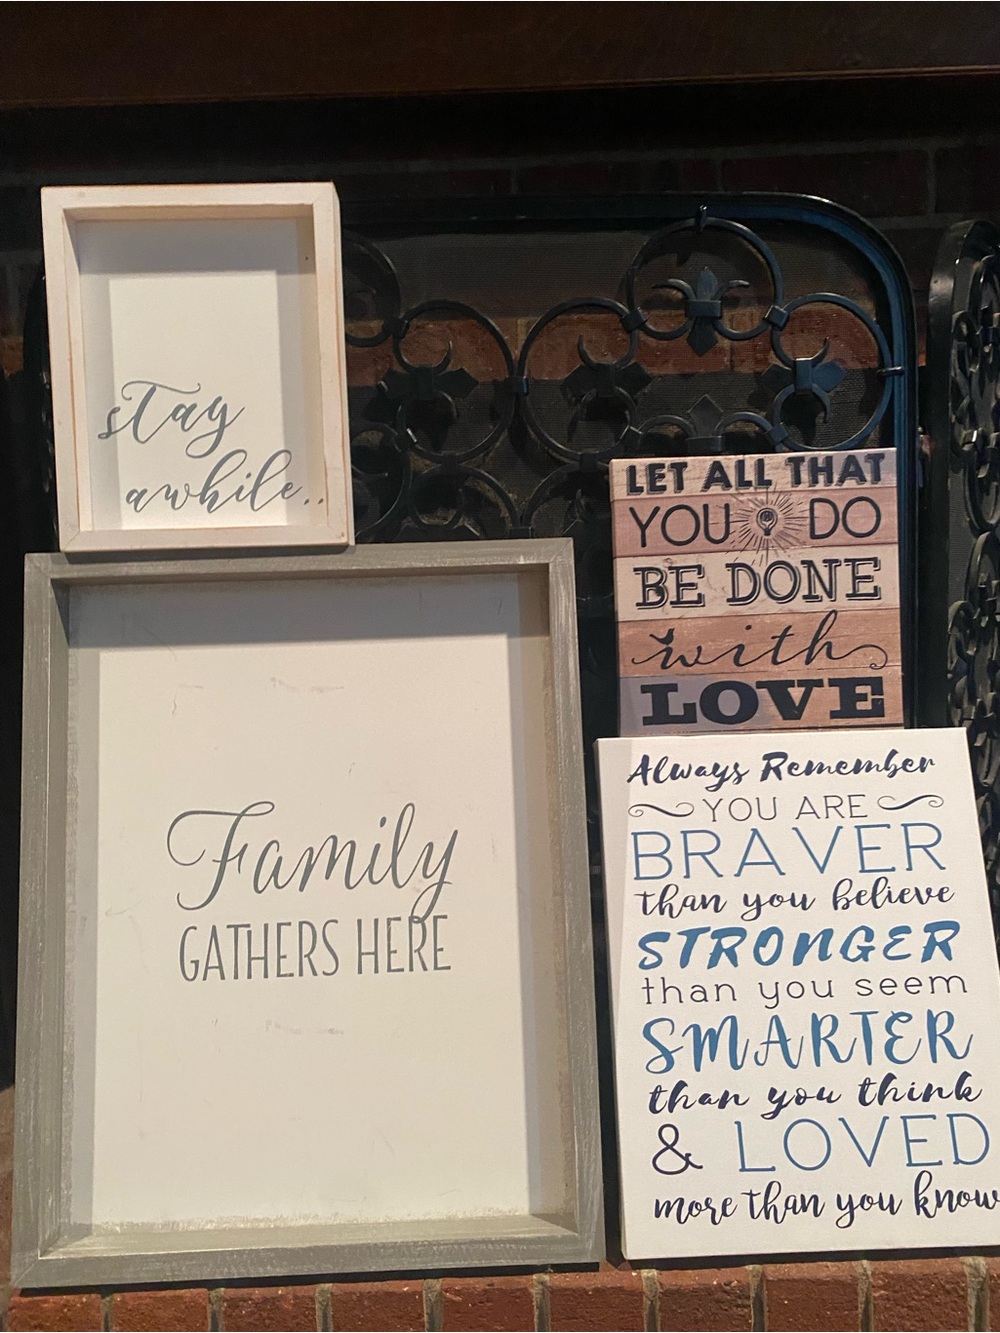 stay
awhile..
Family
GATHERS HERE
LET ALL THAT
YOU DO
BE DONE
with
LOVE
Always Remember
YOU ARE
BRAVER
than you believe
STRONGER
than you seem
SMARTER
than you think
& LOVED
more than you know